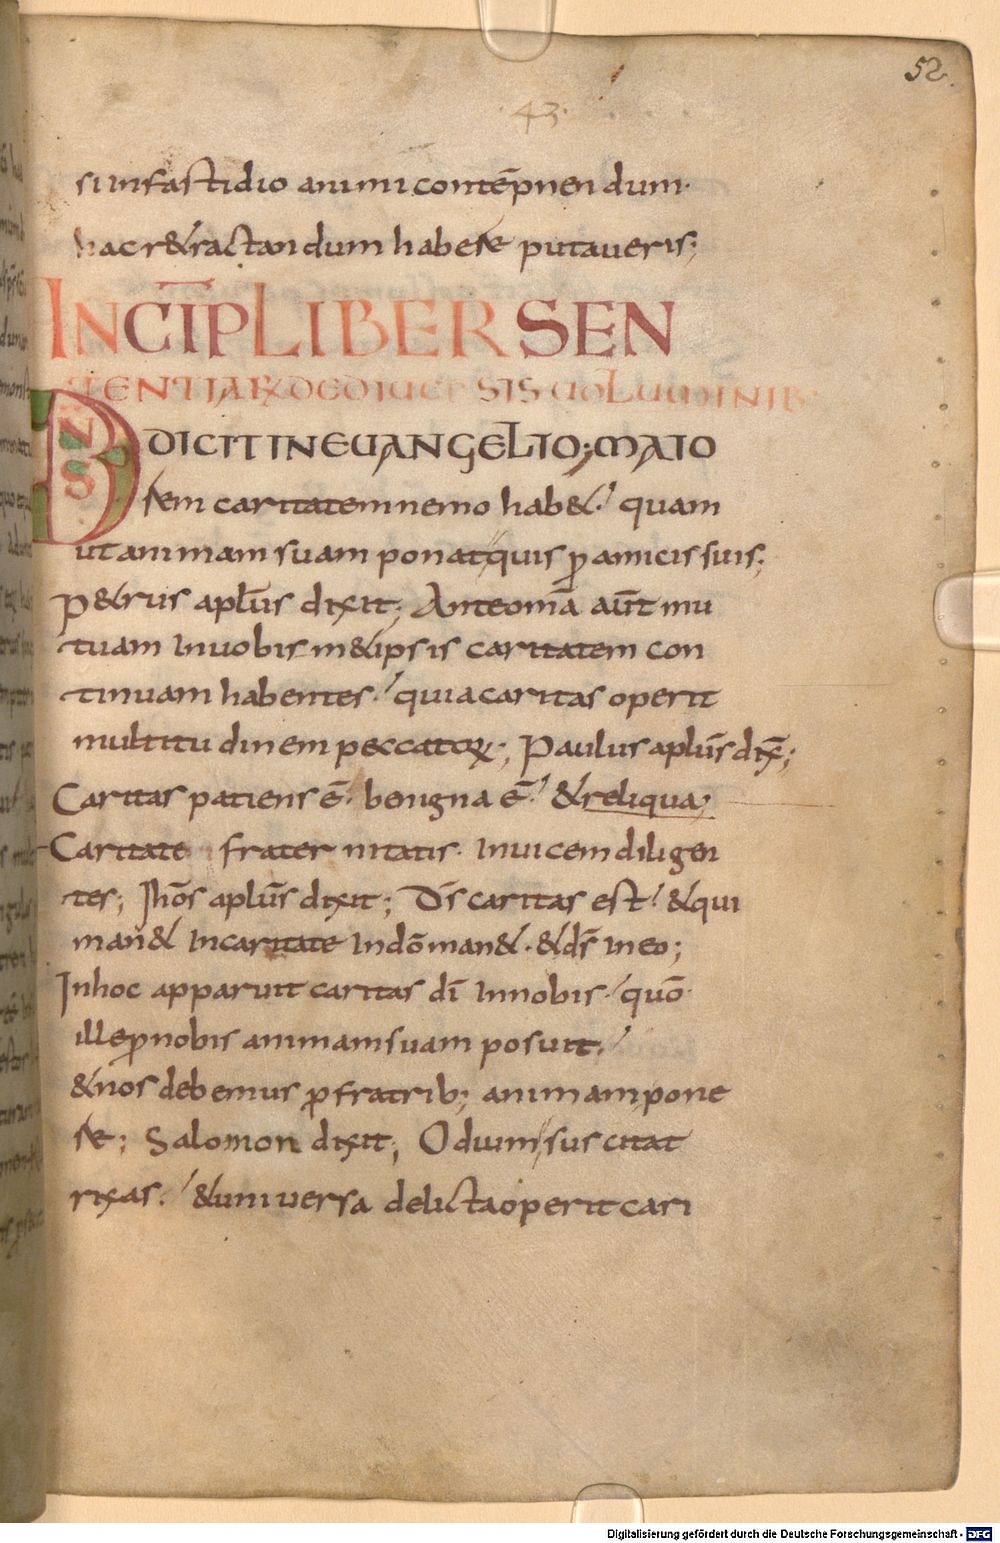 52.
43.
si infastidio animi contēpnendum·
hac r&ractandum habere putaveris;
INCĪP LIBER SEN
TENTIARꝜ DE DIVERSIS VOLUMINIB
DN̄S DICIT IN EUANGELIO; MAIO
rem caritatem nemo hab&· quam
ut animam suam ponat quis ꝓ amicis suis;
P&rus apl̄us dixit; Ante om̄a aūt mu
tuam in uobism&ipsis caritatem con
tinuam habentes· quia caritas operit
multitudinem peccatoꝝ; Paulus aplūs dix̄;
Caritas patiens ē· benigna ē· & reliqua;
Caritate fraternitatis· inuicem diligen
tes; Ihōs aplūs dixit; D̄s caritas est· & qui
man& in caritate in dō man&· & ds̄ in eo;
In hoc apparuit caritas dī in nobis· quō
ille ꝓ nobis animam suam posuit·
& nos debemus ꝓ fratrib; animam pone
re; Salomon dixit; Odium suscitat
rixas· & uniuersa delicta operit cari
Digitalisierung gefördert durch die Deutsche Forschungsgemeinschaft - DFG